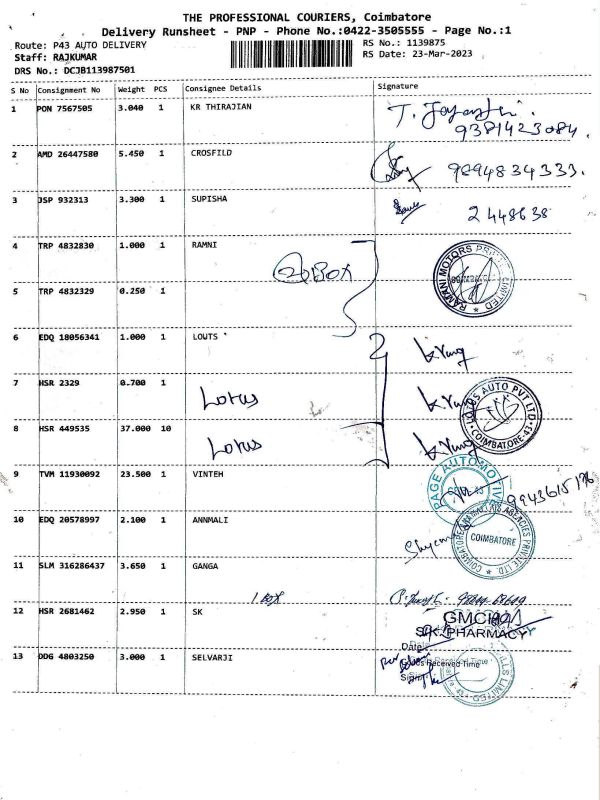 THE PROFESSIONAL COURIERS, Coimbatore
Delivery Runsheet - PNP - Phone No.:0422-3505555 - Page No.:1
Route: P43 AUTO DELIVERY
RS No.: 1139875
Staff: RAJKUMAR
RS Date: 23-Mar-2023
DRS No.: DCJB113987501
S No Consignment No Weight PCS Consignee Details Signature
1 PON 7567505 3.040 1 KR THIRAJIAN
9381423084.
2 AMD 26447580 5.450 1 CROSFILD
9894834333.
3 JSP 932313 3.300 1 SUPISHA
2448638
4 TRP 4832830 1.000 1 RAMNI
BOX
RAMANI MOTORS LIMITED
5 TRP 4832329 0.250 1
6 EDQ 18056341 1.000 1 LOUTS
7 HSR 2329 0.700 1 Lotus
LOTUS AUTO PVT LTD COIMBATORE
8 HSR 449535 37.000 10 Lotus
9 TVM 11930092 23.500 1 VINTEH
PAGE AUTOMOTIVE
10 EDQ 20578997 2.100 1 ANNMALI
COIMBATORE AGENCIES PRIVATE LTD. COIMBATORE
11 SLM 316286437 3.650 1 GANGA
1 BOX
12 HSR 2681462 2.950 1 SK
S.K. PHARMACY
Date
13 DDG 4803250 3.000 1 SELVARJI
Received Time
LIMITED